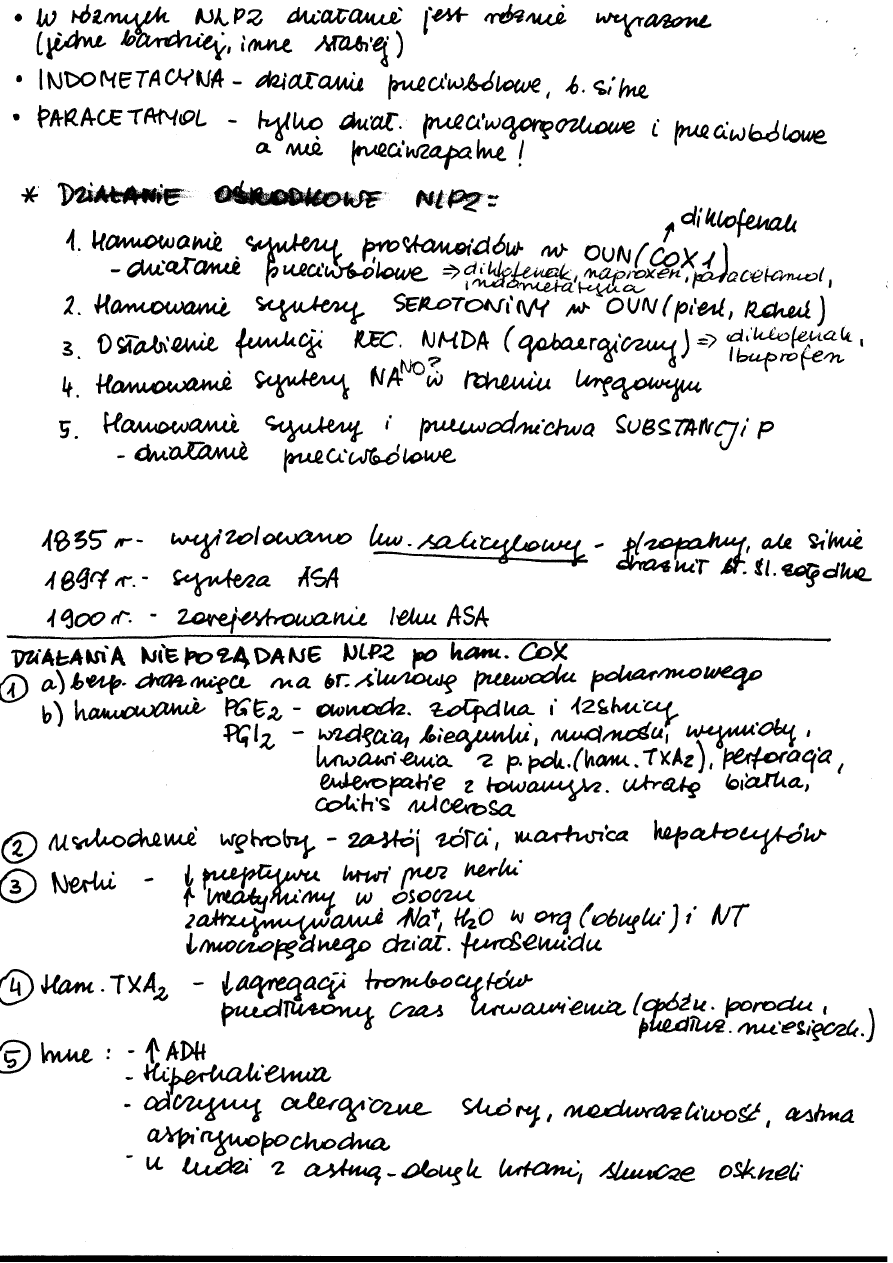 • W różnych NLPZ działanie jest różnie wyrażone
(jedne bardziej, inne słabiej)
• INDOMETACYNA - działanie przeciwbólowe, b. silne
• PARACETAMOL - tylko dział. przeciwgorączkowe i przeciwbólowe
a nie przeciwzapalne!
* DZIAŁANIE OŚRODKOWE NLPZ:
↗ diklofenak
1. Hamowanie syntezy prostanoidów w OUN (COX 1)
- działanie przeciwbólowe ⇒ diklofenak, naproxen, paracetamol,
indometacyna
2. Hamowanie syntezy SEROTONINY w OUN (pień, rdzeń)
3. Osłabienie funkcji REC. NMDA (gabaergiczny) ⇒ diklofenak,
Ibuprofen
4. Hamowanie syntezy NA NO? w rdzeniu kręgowym
5. Hamowanie syntezy i przewodnictwa SUBSTANCJI P
- działanie przeciwbólowe
1835 r - wyizolowano kw. salicylowy - p/zapalny, ale silnie
drażnił bł. śl. żołądka
1897 r. - synteza ASA
1900 r. - zarejestrowanie leku ASA
DZIAŁANIA NIEPOŻĄDANE NLPZ po ham. COX
① a) bezp. drażniące na bł. śluzową przewodu pokarmowego
b) hamowanie PGE2 - owrzodz. żołądka i 12stnicy
PGI2 - wzdęcia, biegunki, nudności, wymioty,
krwawienia z p. pok. (ham. TXA2), perforacja,
enteropatie z towarzysz. utratą białka,
colitis ulcerosa
② Uszkodzenie wątroby - zastój żółci, martwica hepatocytów
③ Nerki - ↓ przepływu krwi przez nerki
↑ kreatyniny w osoczu
zatrzymywanie Na+, H2O w org (obrzęki) i NT
↓ moczopędnego dział. furosemidu
④ Ham. TXA2 - ↓ agregacji trombocytów
przedłużony czas krwawienia (opóźn. porodu,
przedłuż. miesiączk.)
⑤ Inne : - ↑ ADH
- Hiperkaliemia
- odczyny alergiczne skóry, nadwrażliwość, astma
aspirynopochodna
- u ludzi z astmą - obrzęk krtani, skurcze oskrzeli